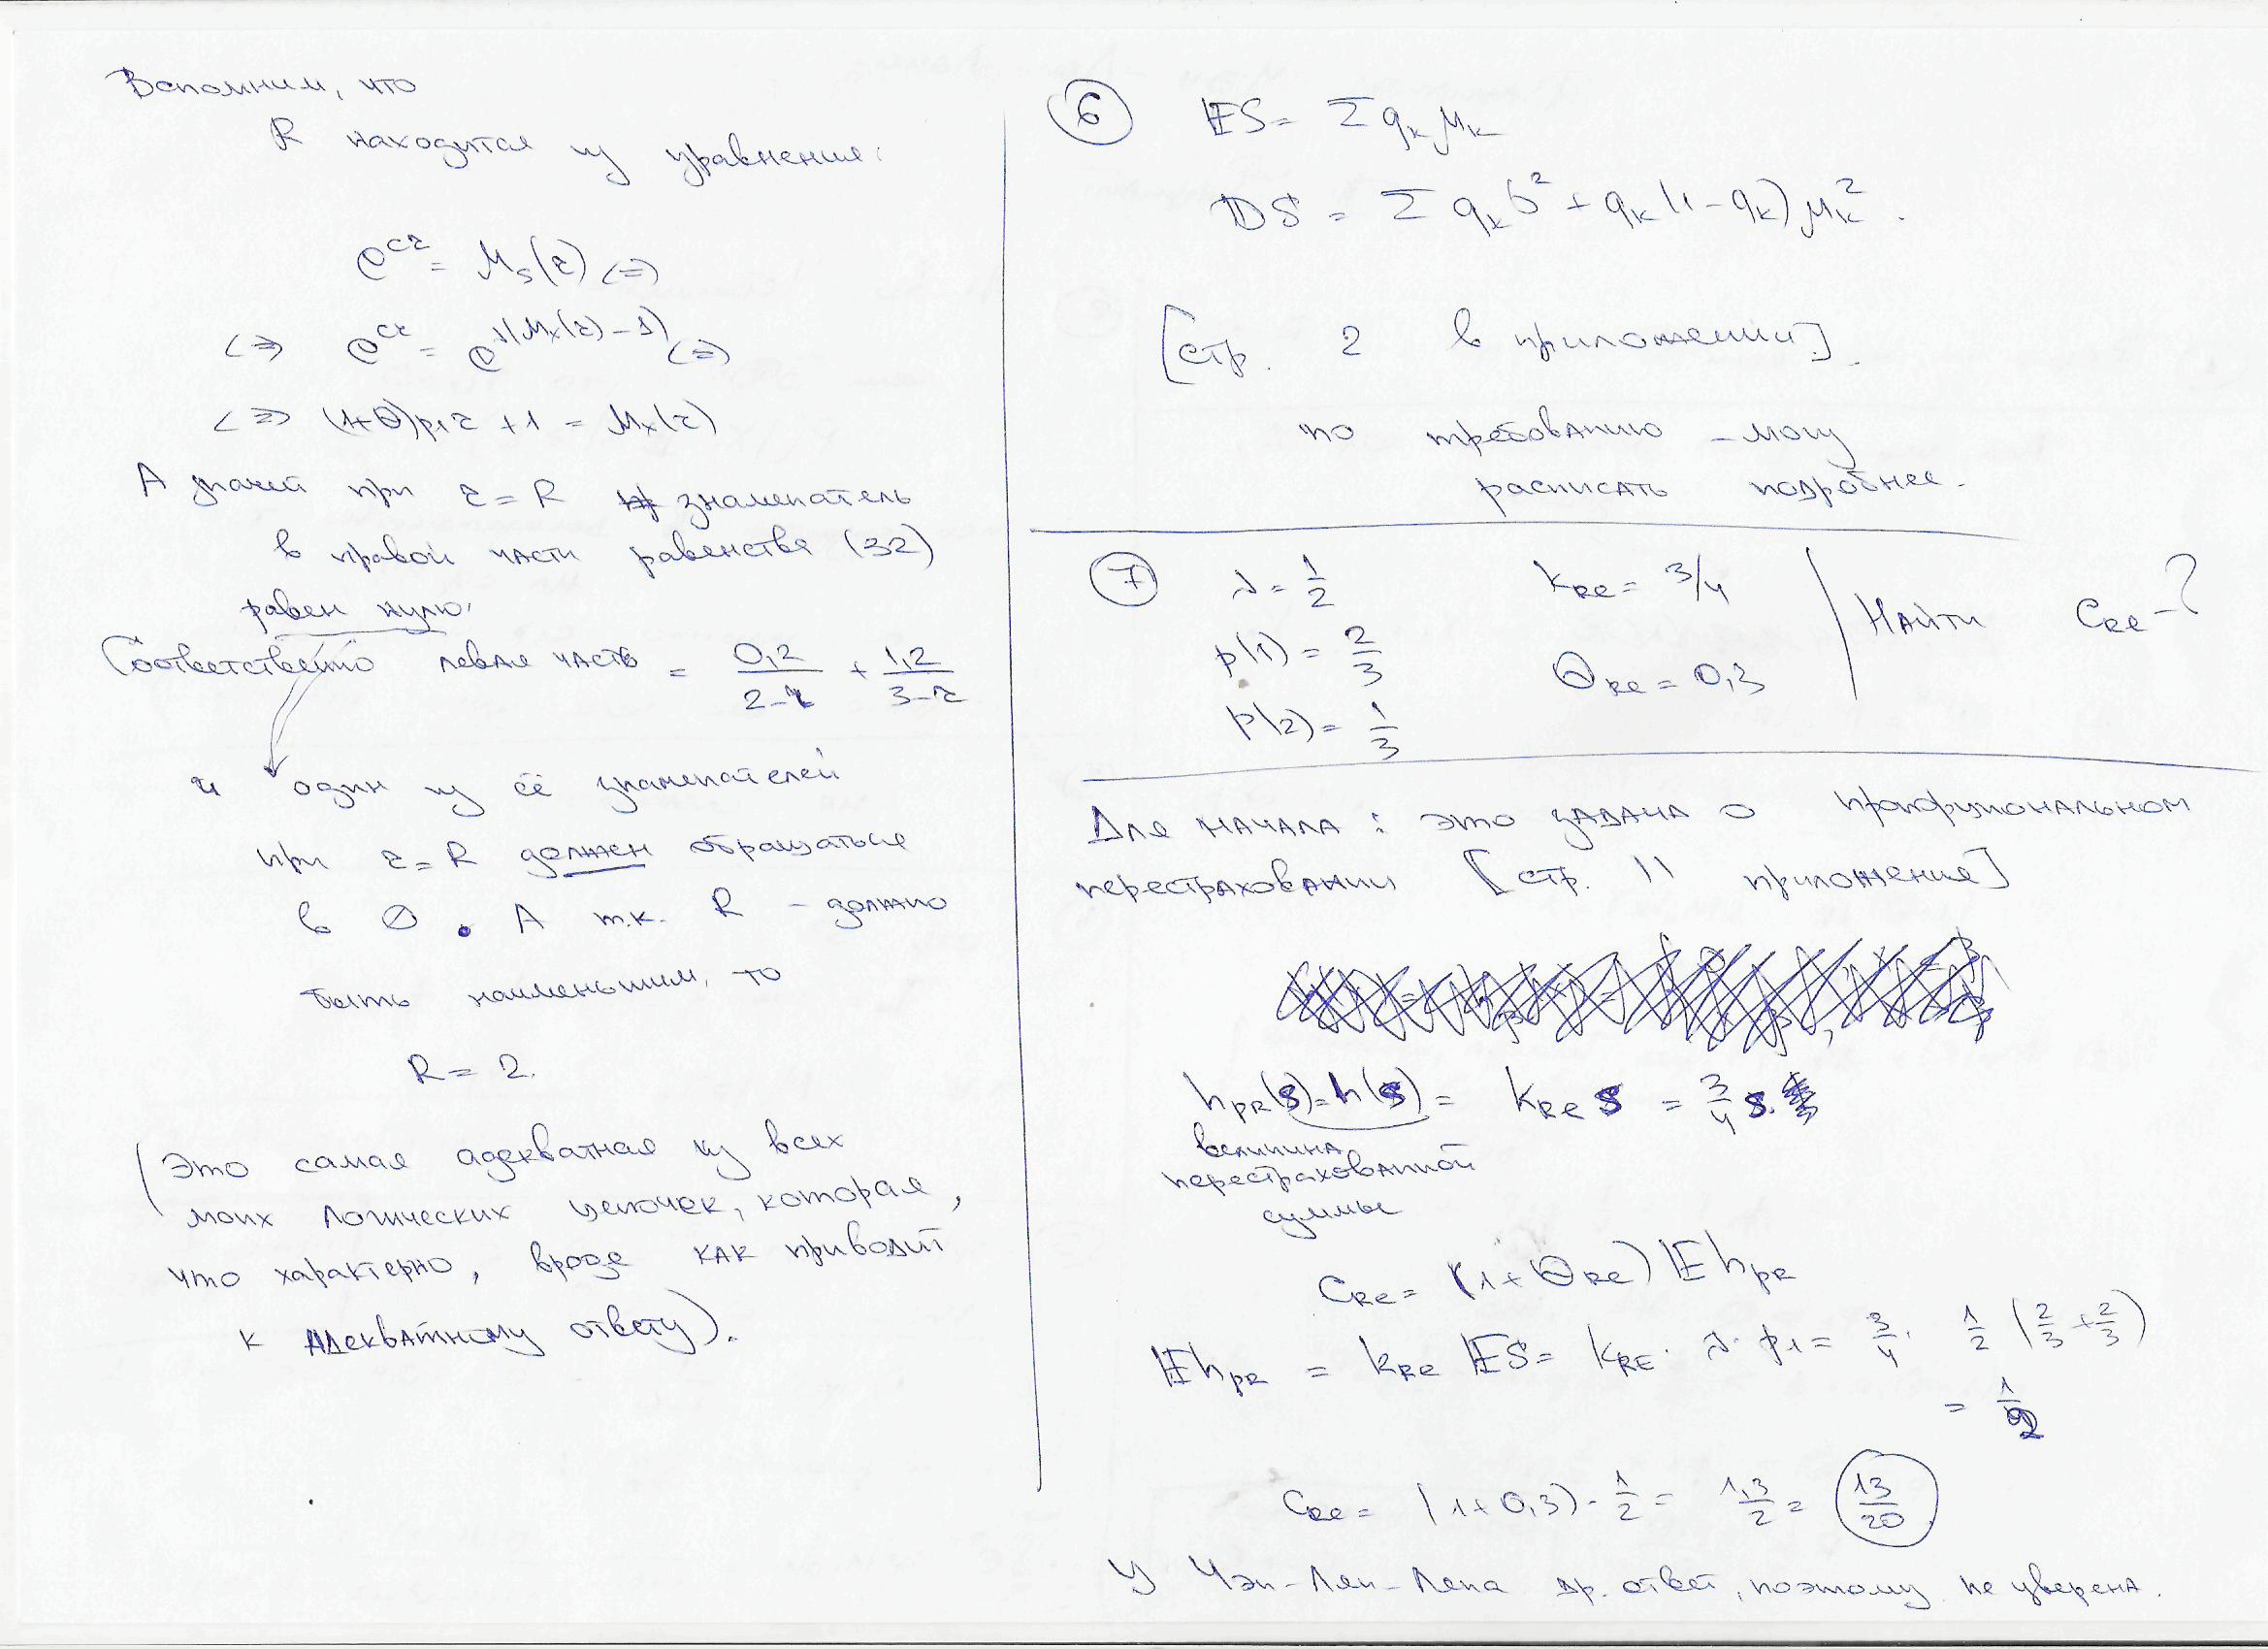 Вспомним, что
R находится из уравнения:
e^{cr} = M_S(r) <=>
<=> e^{cr} = e^{λ(M_X(r) - 1)} <=>
<=> (1+θ)p₁r + 1 = M_X(r)
А значит при r = R знаменатель
в правой части равенства (32)
равен нулю.
Соответственно левая часть = 0,2/(2-r) + 1,2/(3-r)
и один из её знаменателей
при r = R должен обращаться
в 0. А т.к. R - должно
быть наименьшим, то
R = 2.
(Это самая адекватная из всех
моих логических цепочек, которая,
что характерно, вроде как приводит
к адекватному ответу).
⑥ ES = Σ q_k μ_k
DS = Σ q_k σ² + q_k (1 - q_k) μ_k².
[стр. 2 в приложении].
по требованию - могу
расписать подробнее.
⑦ λ = 1/2 k_Re = 3/4 Найти C_Re - ?
p(1) = 2/3 θ_Re = 0,3
p(2) = 1/3
Для начала: это задача о пропорциональном
перестраховании [стр. 11 приложения]
h_PR(S) = h(S) = k_Re S = 3/4 S.
величина
перестрахованной
суммы
C_Re = (1 + θ_Re) E h_PR
E h_PR = k_Re ES = k_RE · λ · p₁ = 3/4 · 1/2 (2/3 + 2/3)
= 1/2
C_Re = (1 + 0,3) · 1/2 = 1,3/2 = 13/20
У Чэн-Лян-Лена др. ответ, поэтому не уверена.